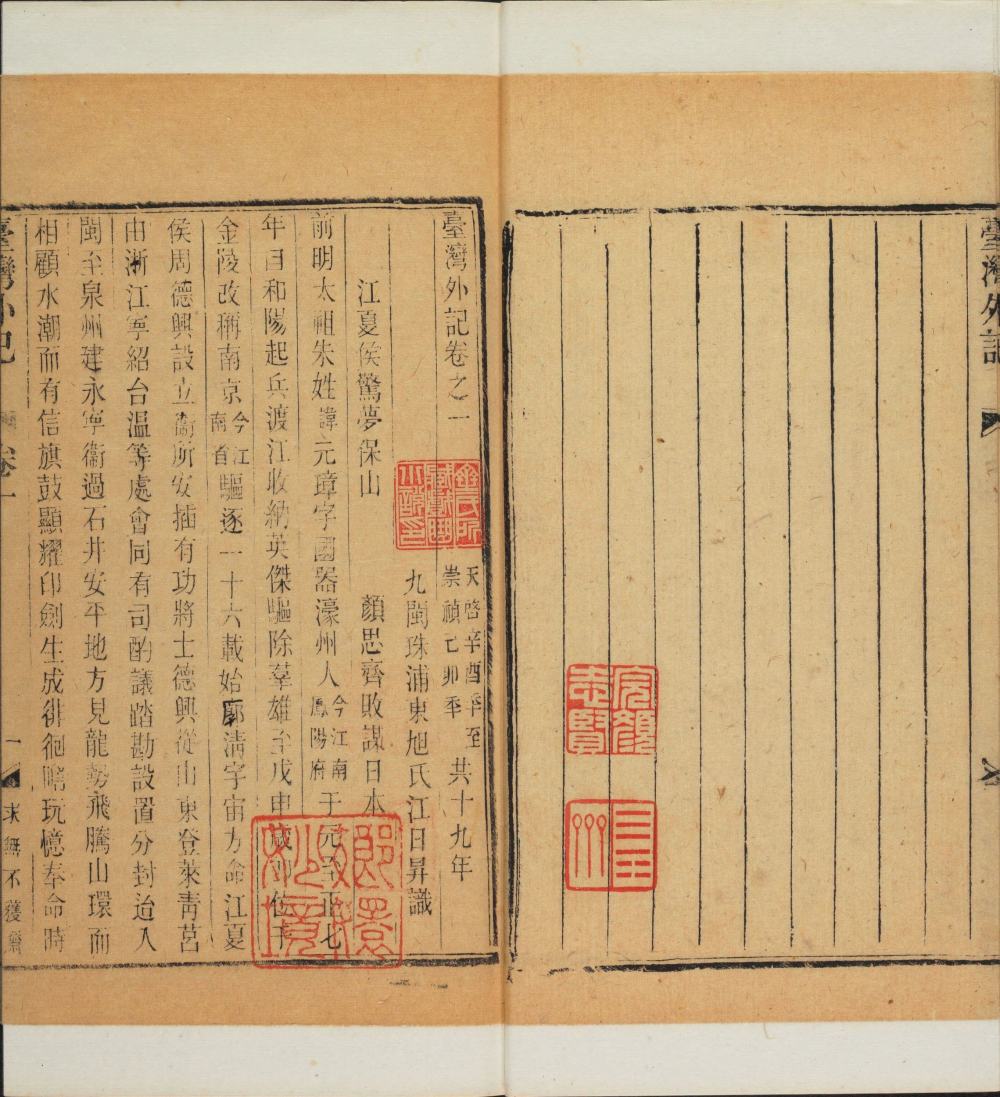 臺灣外記
臺灣外記卷之一
天啓辛酉年至
崇禎己卯年
共十九年
九閩珠浦東旭氏江日昇識
江夏侯驚夢保山 顏思齊敗謀日本
前明太祖朱姓諱元璋字國器濠州人今江南鳳陽府于元至正七
年自和陽起兵渡江收納英傑驅除羣雄至戊申歲即位于
金陵改稱南京今江南省驅逐一十六載始廓清宇宙方命江夏
侯周德興設立衞所安插有功將士德興從山東登萊青莒
由浙江寧紹台溫等處會同有司酌議踏勘設置分封迨入
閩至泉州建永寧衞過石井安平地方見龍勢飛騰山環而
相顧水潮而有信旗鼓顯耀印劍生成徘徊瞻玩憶奉命時
臺灣外記 卷一 一 求無不獲齋
完顏
志賢
三王